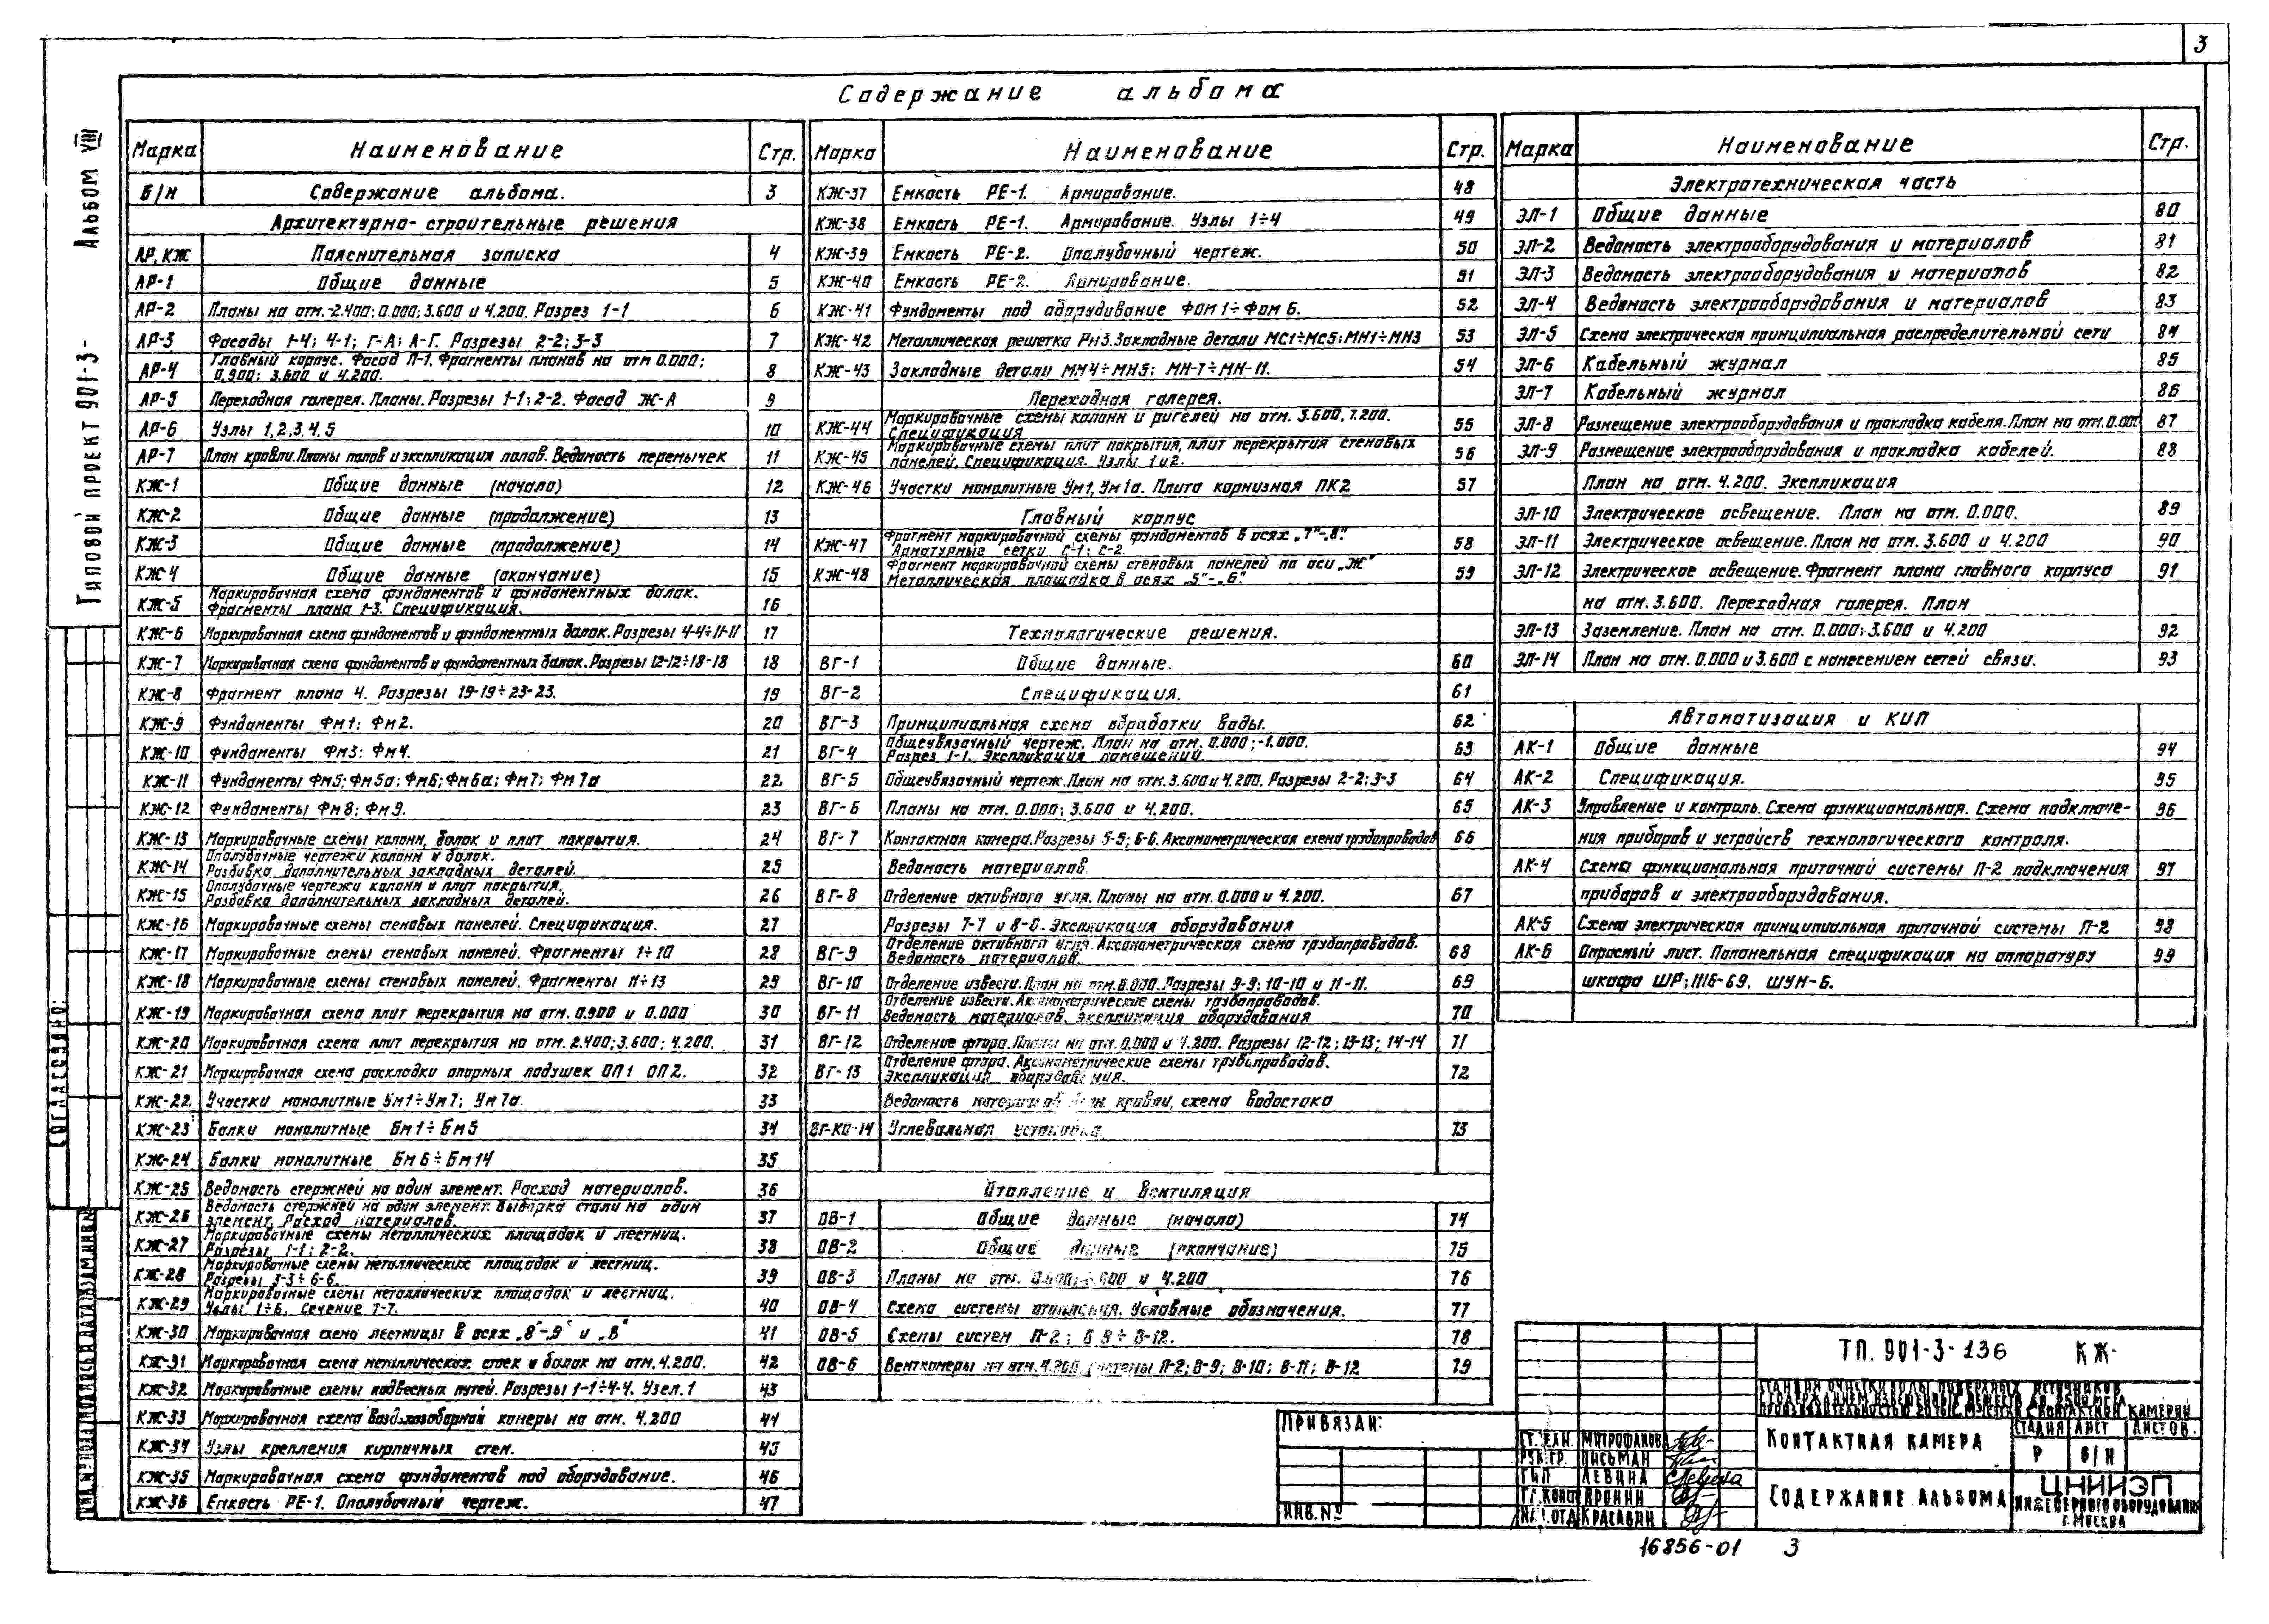 3
Содержание альбома
Альбом VIII
Типовой проект 901-3-
Марка Наименование Стр.
Б/Н Содержание альбома. 3
Архитектурно-строительные решения
АР, КЖ Пояснительная записка 4
АР-1 Общие данные 5
АР-2 Планы на отм.-2.400; 0.000; 3.600 и 4.200. Разрез 1-1 6
АР-3 Фасады 1-4; 4-1; Г-А; А-Г. Разрезы 2-2; 3-3 7
АР-4 Главный корпус. Фасад П-1. Фрагменты планов на отм 0.000;
0.900; 3.600 и 4.200. 8
АР-5 Переходная галерея. Планы. Разрезы 1-1; 2-2. Фасад Ж-А 9
АР-6 Узлы 1,2,3,4,5 10
АР-7 План кровли. Планы полов и экспликация полов. Ведомость перемычек 11
КЖ-1 Общие данные (начало) 12
КЖ-2 Общие данные (продолжение) 13
КЖ-3 Общие данные (продолжение) 14
КЖ-4 Общие данные (окончание) 15
КЖ-5 Маркировочная схема фундаментов и фундаментных балок.
Фрагменты плана 1-3. Спецификация. 16
КЖ-6 Маркировочная схема фундаментов и фундаментных балок. Разрезы 4-4÷11-11 17
КЖ-7 Маркировочная схема фундаментов и фундаментных балок. Разрезы 12-12÷18-18 18
КЖ-8 Фрагмент плана 4. Разрезы 19-19÷23-23. 19
КЖ-9 Фундаменты Фм1; Фм2. 20
КЖ-10 Фундаменты Фм3; Фм4. 21
КЖ-11 Фундаменты Фм5; Фм5а; Фм6; Фм6а; Фм7; Фм7а 22
КЖ-12 Фундаменты Фм8; Фм9. 23
КЖ-13 Маркировочные схемы колонн, балок и плит покрытия. 24
КЖ-14 Опалубочные чертежи колонн и балок.
Разбивка дополнительных закладных деталей. 25
КЖ-15 Опалубочные чертежи колонн и плит покрытия.
Разбивка дополнительных закладных деталей. 26
КЖ-16 Маркировочные схемы стеновых панелей. Спецификация. 27
КЖ-17 Маркировочные схемы стеновых панелей. Фрагменты 1÷10 28
КЖ-18 Маркировочные схемы стеновых панелей. Фрагменты 11÷13 29
КЖ-19 Маркировочная схема плит перекрытия на отм. 0.900 и 0.000 30
КЖ-20 Маркировочная схема плит перекрытия на отм. 2.400; 3.600; 4.200. 31
КЖ-21 Маркировочная схема раскладки опорных подушек ОП1 ОП2. 32
КЖ-22 Участки монолитные Ум1÷Ум7; Ум7а. 33
КЖ-23 Балки монолитные Бм1÷Бм5 34
КЖ-24 Балки монолитные Бм6÷Бм14 35
КЖ-25 Ведомость стержней на один элемент. Расход материалов. 36
КЖ-26 Ведомость стержней на один элемент. Выборка стали на один
элемент. Расход материалов. 37
КЖ-27 Маркировочные схемы металлических площадок и лестниц.
Разрезы 1-1; 2-2. 38
КЖ-28 Маркировочные схемы металлических площадок и лестниц.
Разрезы 3-3÷6-6. 39
КЖ-29 Маркировочные схемы металлических площадок и лестниц.
Узлы 1÷6. Сечение 7-7. 40
КЖ-30 Маркировочная схема лестницы в осях „8"-„9" и „В" 41
КЖ-31 Маркировочная схема металлическая стоек и балок на отм. 4.200. 42
КЖ-32 Маркировочные схемы подвесных путей. Разрезы 1-1÷4-4. Узел.1 43
КЖ-33 Маркировочная схема воздухозаборной камеры на отм. 4.200 44
КЖ-34 Узлы крепления кирпичных стен. 45
КЖ-35 Маркировочная схема фундаментов под оборудование. 46
КЖ-36 Емкость РЕ-1. Опалубочный чертеж. 47
Марка Наименование Стр.
КЖ-37 Емкость РЕ-1. Армирование. 48
КЖ-38 Емкость РЕ-1. Армирование. Узлы 1÷4 49
КЖ-39 Емкость РЕ-2. Опалубочный чертеж. 50
КЖ-40 Емкость РЕ-2. Армирование. 51
КЖ-41 Фундаменты под оборудование Фом1÷Фом6. 52
КЖ-42 Металлическая решетка Рм3. Закладные детали МС1÷МС5; МН1÷МН3 53
КЖ-43 Закладные детали МН4÷МН5; МН-7÷МН-11. 54
Переходная галерея.
КЖ-44 Маркировочные схемы колонн и ригелей на отм. 3.600, 7.200.
Спецификация 55
КЖ-45 Маркировочные схемы плит покрытия, плит перекрытия стеновых
панелей. Спецификация. Узлы 1 и 2. 56
КЖ-46 Участки монолитные Ум1, Ум1а. Плита карнизная ПК2 57
Главный корпус
КЖ-47 Фрагмент маркировочной схемы фундаментов в осях „7"-„8".
Арматурные сетки С-1; С-2. 58
КЖ-48 Фрагмент маркировочной схемы стеновых панелей по оси „Ж"
Металлическая площадка в осях „5"-„6" 59
Технологические решения.
ВГ-1 Общие данные. 60
ВГ-2 Спецификация. 61
ВГ-3 Принципиальная схема обработки воды. 62
ВГ-4 Общеувязочный чертеж. План на отм. 0.000; -1.000.
Разрез 1-1. Экспликация помещений. 63
ВГ-5 Общеувязочный чертеж. План на отм. 3.600 и 4.200. Разрезы 2-2; 3-3 64
ВГ-6 Планы на отм. 0.000; 3.600 и 4.200. 65
ВГ-7 Контактная камера. Разрезы 5-5; 6-6. Аксонометрическая схема трубопроводов 66
Ведомость материалов
ВГ-8 Отделение активного угля. Планы на отм. 0.000 и 4.200. 67
Разрезы 7-7 и 8-8. Экспликация оборудования
ВГ-9 Отделение активного угля. Аксонометрическая схема трубопроводов.
Ведомость материалов. 68
ВГ-10 Отделение извести. План на отм. 0.000. Разрезы 9-9; 10-10 и 11-11. 69
ВГ-11 Отделение извести. Аксонометрические схемы трубопроводов.
Ведомость материалов. Экспликация оборудования 70
ВГ-12 Отделение фтора. Планы на отм. 0.000 и 4.200. Разрезы 12-12; 13-13; 14-14 71
ВГ-13 Отделение фтора. Аксонометрические схемы трубопроводов.
Экспликация оборудования. 72
Ведомость материалов План кровли, схема водостока
ВГ-КО-14 Углевальная установка. 73
Отопление и Вентиляция
ОВ-1 Общие данные (начало) 74
ОВ-2 Общие данные (окончание) 75
ОВ-3 Планы на отм. 0.000; 3.600 и 4.200 76
ОВ-4 Схема системы отопления. Условные обозначения. 77
ОВ-5 Схемы систем П-2; В-9÷В-12. 78
ОВ-6 Венткамеры на отм. 4.200. Системы П-2; В-9; В-10; В-11; В-12 79
Марка Наименование Стр.
Электротехническая часть
ЭЛ-1 Общие данные 80
ЭЛ-2 Ведомость электрооборудования и материалов 81
ЭЛ-3 Ведомость электрооборудования и материалов 82
ЭЛ-4 Ведомость электрооборудования и материалов 83
ЭЛ-5 Схема электрическая принципиальная распределительной сети 84
ЭЛ-6 Кабельный журнал 85
ЭЛ-7 Кабельный журнал 86
ЭЛ-8 Размещение электрооборудования и прокладка кабеля. План на отм. 0.000 87
ЭЛ-9 Размещение электрооборудования и прокладка кабелей. 88
План на отм. 4.200. Экспликация
ЭЛ-10 Электрическое освещение. План на отм. 0.000. 89
ЭЛ-11 Электрическое освещение. План на отм. 3.600 и 4.200 90
ЭЛ-12 Электрическое освещение. Фрагмент плана главного корпуса 91
на отм. 3.600. Переходная галерея. План
ЭЛ-13 Заземление. План на отм. 0.000; 3.600 и 4.200 92
ЭЛ-14 План на отм. 0.000 и 3.600 с нанесением сетей связи. 93
Автоматизация и КИП
АК-1 Общие данные 94
АК-2 Спецификация. 95
АК-3 Управление и контроль. Схема функциональная. Схема подключе- 96
ния приборов и устройств технологического контроля.
АК-4 Схема функциональная приточной системы П-2 подключения 97
приборов и электрооборудования.
АК-5 Схема электрическая принципиальная приточной системы П-2 98
АК-6 Опросный лист. Попанельная спецификация на аппаратуру 99
шкафа ШР; ШУН-6.
СОГЛАСОВАНО:
ПОДПИСЬ И ДАТА ВЗАМ.ИНВ.№
ПРИВЯЗАН:
ИНВ.№
СТ.ТЕХН. МИТРОФАНОВА
РУК.ГР. ПИСЬМАН
ГИП ЛЕВИНА
ГЛ.КОНСТ. АРОНИН
НАЧ.ОТД КРАСАВИН
ТП. 901-3-136 КЖ-
СТАНЦИЯ ОЧИСТКИ ВОДЫ ПОВЕРХНЫХ ИСТОЧНИКОВ
С СОДЕРЖАНИЕМ ВЗВЕШЕННЫХ ВЕЩЕСТВ ДО 2500 МГ/Л
ПРОИЗВОДИТЕЛЬНОСТЬЮ 20 ТЫС. М³/СУТКИ С КОНТАКТНОЙ КАМЕРОЙ
КОНТАКТНАЯ КАМЕРА
СТАДИЯ ЛИСТ ЛИСТОВ.
Р Б/Н
СОДЕРЖАНИЕ АЛЬБОМА
ЦНИИЭП
ИНЖЕНЕРНОГО ОБОРУДОВАНИЯ
Г. МОСКВА
16856-01 3